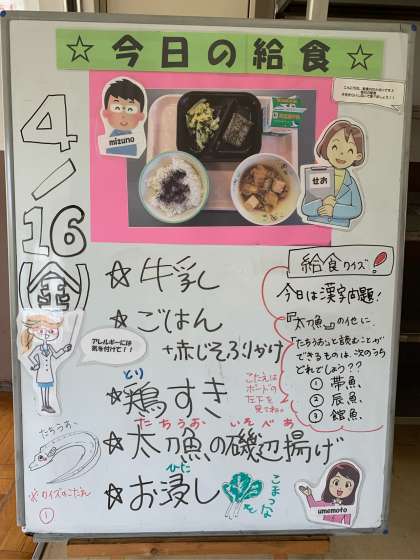 ☆今日の給食☆
4/16(金)
mizuno
せお
☆牛乳
☆ごはん
+赤じそふりかけ
とり
☆鶏すき
たちうお いそべあ
☆太刀魚の磯辺揚げ
ひた
☆お浸し
こまつな
アレルギーには
気を付けて!!
たちうお
※クイズのこたえ
①
給食クイズ!
今日は漢字問題!
『太刀魚』の他に、
「たちうお」と読むことが
できるものは、次のうち
どれでしょう??
① 帯魚
② 辰魚
③ 館魚
こたえは
ボードの
左下を
見てね。
umemoto